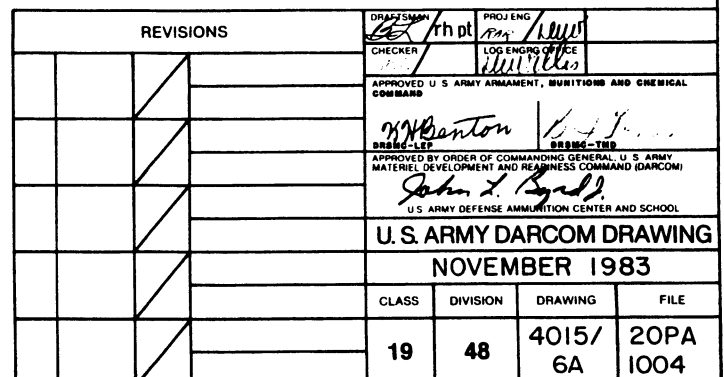 REVISIONS
DRAFTSMAN
rh pt
PROJ ENG
CHECKER
LOG ENGRG OFFICE
APPROVED U S ARMY ARMAMENT, MUNITIONS AND CHEMICAL
COMMAND
KHBenton
DRSMC-LEP
DRSMC-TMD
APPROVED BY ORDER OF COMMANDING GENERAL, U S ARMY
MATERIEL DEVELOPMENT AND READINESS COMMAND (DARCOM)
John L. Byrd Jr.
U S ARMY DEFENSE AMMUNITION CENTER AND SCHOOL
U. S. ARMY DARCOM DRAWING
NOVEMBER 1983
CLASS DIVISION DRAWING FILE
19 48 4015/ 20PA
6A 1004